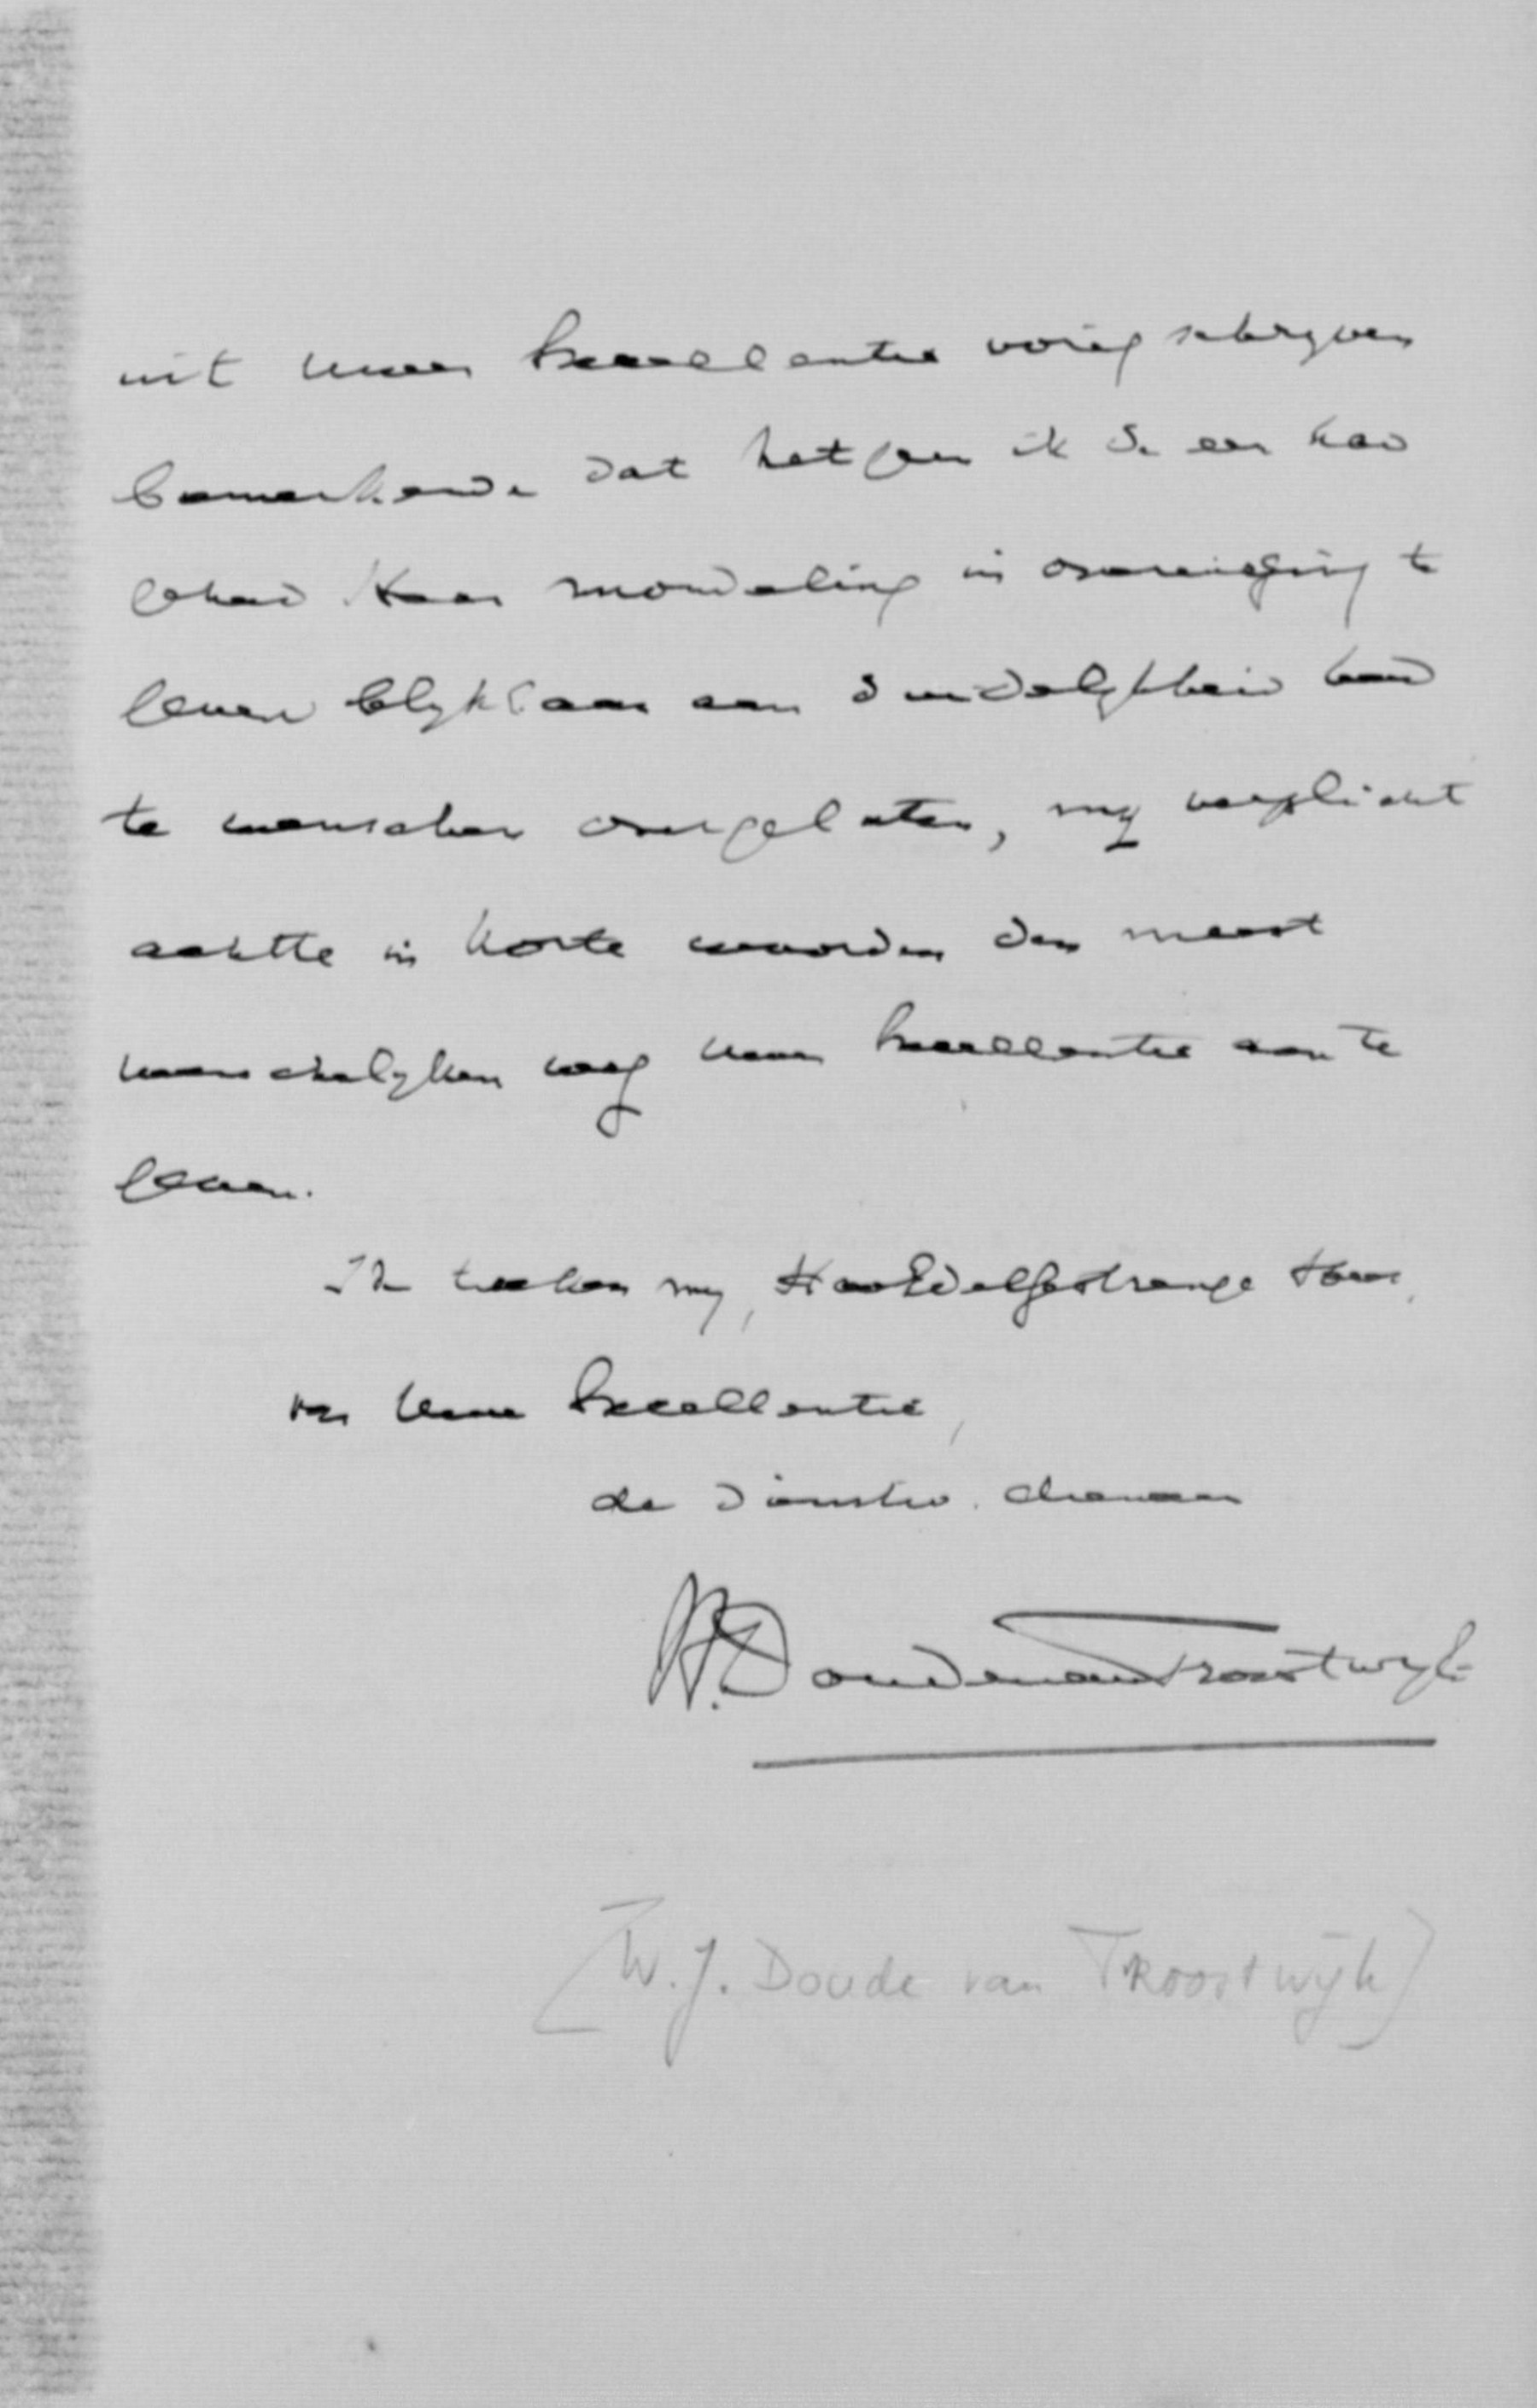 uit Uwer Excellentie vorig schrijven
bemerkende dat hetgeen ik de eer had
gehad Haar mondeling in overweging te
geven blijkbaar aan duidelijkheid had
te wenschen overgelaten, mij verplicht
achtte in korte woorden den meest
wenschelijken weg Uwer Excellentie aan te
geven.
Ik teeken mij, HoogEdelGestrenge Heer,
van Uwe Excellentie,
de dienstw. dienaar
W. Doude van Troostwijk
[W.J. Doude van Troostwijk]